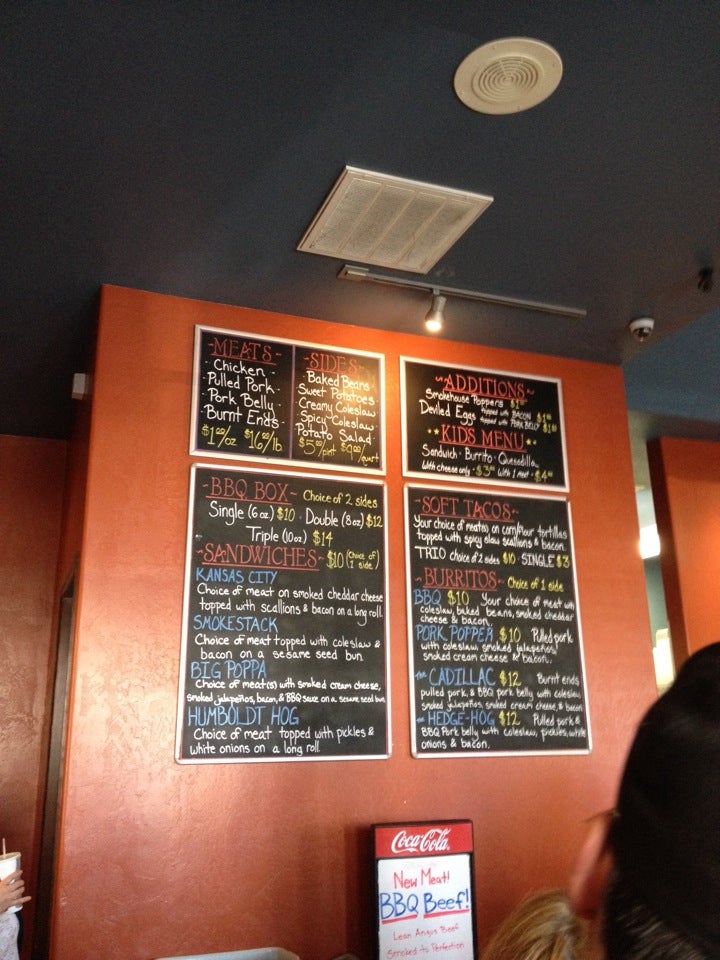 -MEATS-
-Chicken-
-Pulled Pork-
-Pork Belly-
-Burnt Ends-
$1.00/oz $16.00/lb
-SIDES-
-Baked Beans-
Sweet Potatoes
-Creamy Coleslaw
-Spicy Coleslaw
Potato Salad-
$5.00/pint $9.00/quart
~ADDITIONS~
Smokehouse Poppers $1
Deviled Eggs topped with BACON $1
topped with PORK BELLY $1
KIDS MENU
Sandwich · Burrito · Quesadilla
with cheese only - $3 with 1 meat - $4
-BBQ BOX- Choice of 2 sides
Single (6oz) $10 · Double (8oz) $12
Triple (10oz) $14
-SANDWICHES- $10 (Choice of 1 side)
KANSAS CITY
Choice of meat on smoked cheddar cheese
topped with scallions & bacon on a long roll.
SMOKESTACK
Choice of meat topped with coleslaw &
bacon on a sesame seed bun.
BIG POPPA
Choice of meat(s) with smoked cream cheese,
smoked jalapeños, bacon, & BBQ sauce on a sesame seed bun.
HUMBOLDT HOG
Choice of meat topped with pickles &
white onions on a long roll.
-SOFT TACOS-
Your choice of meat(s) on corn/flour tortillas
topped with spicy slaw scallions & bacon.
TRIO choice of 2 sides $10 · SINGLE $3
-BURRITOS- Choice of 1 side
BBQ $10 Your choice of meat with
coleslaw, baked beans, smoked cheddar
cheese & bacon.
PORK POPPER $10 Pulled pork
with coleslaw, smoked jalapeños,
smoked cream cheese & bacon.
the CADILLAC $12 Burnt ends
pulled pork, & BBQ pork belly with coleslaw,
smoked jalapeños, smoked cream cheese, & bacon
the HEDGE-HOG $12 Pulled pork &
BBQ Pork belly with coleslaw, pickles, white
onions & bacon.
Coca-Cola
New Meat!
BBQ Beef!
Lean Angus Beef
Smoked to Perfection